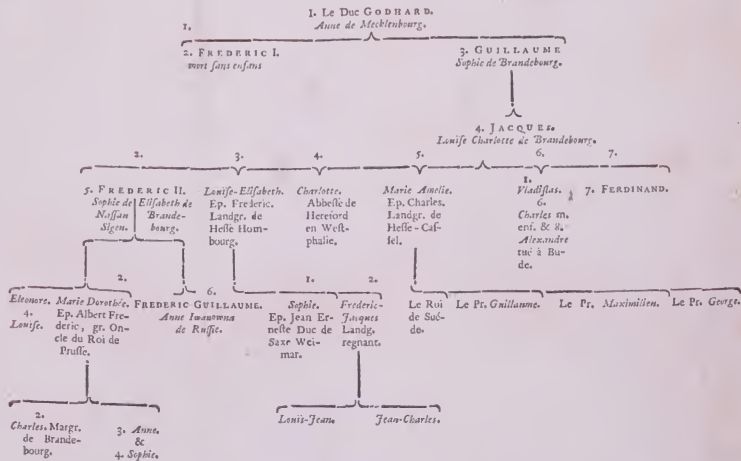 1. Le Duc GODHARD.
1.
Anne de Mecklenbourg.
2. FREDERIC I.
mort sans enfans
3. GUILLAUME
Sophie de Brandebourg.
4. JACQUES.
Louise Charlotte de Brandebourg.
2.
5. FREDERIC II.
Sophie de Nassau Sigen.
Elisabeth de Brandebourg.
3.
Louise-Elisabeth.
Ep. Frederic.
Landgr. de
Hesse Hom-
bourg.
4.
Charlotte.
Abbesse de
Hereford
en West-
phalie.
5.
Marie Amelie.
Ep. Charles.
Landgr. de
Hesse-Cas-
sel.
6.
1.
Vladislas.
6.
Charles m.
enf. & 8.
Alexandre
tué à Bu-
de.
7.
7. FERDINAND.
Eleonore.
4.
Louise.
2.
Marie Dorothée.
Ep. Albert Fre-
deric, gr. On-
cle du Roi de
Prusse.
6.
FREDERIC GUILLAUME.
Anne Iwanowna
de Russie.
1.
Sophie.
Ep. Jean Er-
neste Duc de
Saxe Wei-
mar.
2.
Frederic-
Jacques
Landg.
regnant.
Le Roi
de Sué-
de.
Le Pr. Guillaume.
Le Pr. Maximilien.
Le Pr. George.
2.
Charles. Margr.
de Brande-
bourg.
3. Anne.
&
4. Sophie.
Louis-Jean.
Jean-Charles.